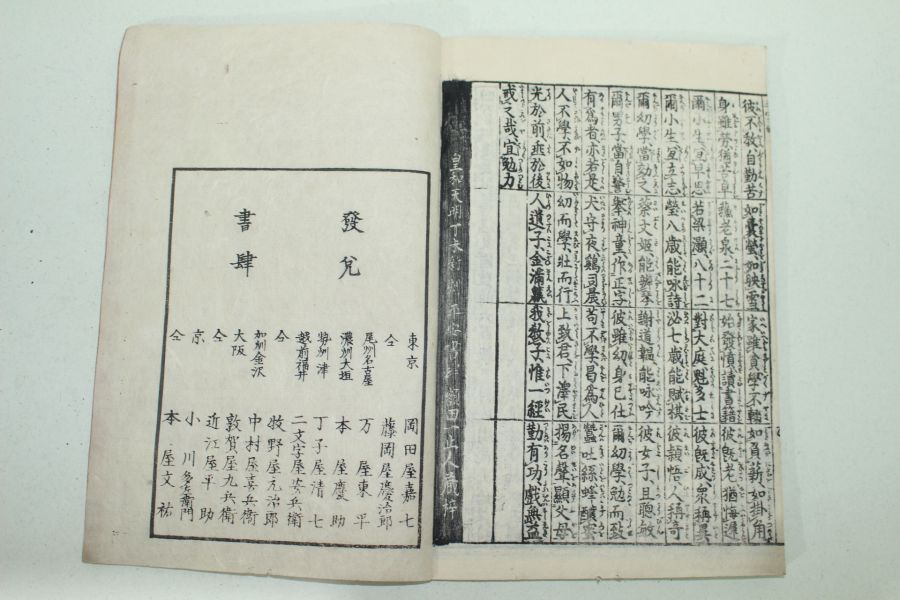 彼不教自勤苦 如囊螢如映雪 家雖貧學不輟 如負薪如掛角
身雖勞猶苦卓 蘇老泉二十七 始發憤讀書籍 彼既老猶悔遲
爾小生宜早思 若梁灝八十二 對大庭魁多士 彼既成衆稱異
爾小生宜立志 瑩八歲能咏詩 泌七歲能賦棋 彼穎悟人稱奇
爾幼學當効之 蔡文姬能辨琴 謝道韞能咏吟 彼女子且聰敏
爾男子當自警 舉神童作正字 彼雖幼身已仕 爾幼學勉而致
有爲者亦若是 犬守夜鷄司晨 苟不學曷爲人 蠶吐絲蜂釀蜜
人不學不如物 幼而學壯而行 上致君下澤民 揚名聲顯父母
光於前垂於後 人遺子金滿籯 我敎子惟一經 勤有功戲無益
戒之哉宜勉力
皇和天明丁未
發兌
書肆
東京 岡田屋嘉七
仝 藤岡屋慶治郎
尾州名古屋 万屋東平
濃州大垣 本屋慶助
勢州津 丁子屋清七
越前福井 二文字屋安兵衛
仝 牧野屋元治郎
加州金沢 中村屋喜兵衛
大阪 敦賀屋九兵衛
仝 近江屋平助
京 小川多左衛門
仝 本屋文祐